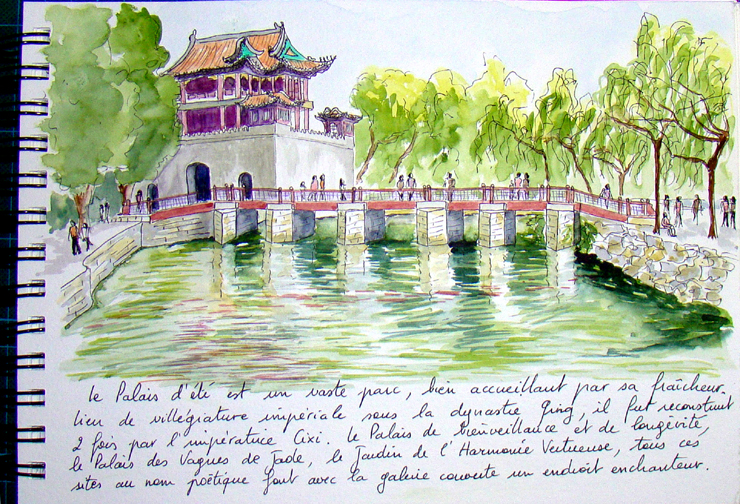 Le Palais d'été est un vaste parc, bien accueillant par sa fraîcheur.
Lieu de villégiature impériale sous la dynastie Qing, il fut reconstruit
2 fois par l'impératrice Cixi. Le Palais de Bienveillance et de longévité,
le Palais des Vagues de Jade, le Jardin de l'Harmonie Vertueuse, tous ces
sites au nom poétique font avec la galerie couverte un endroit enchanteur.